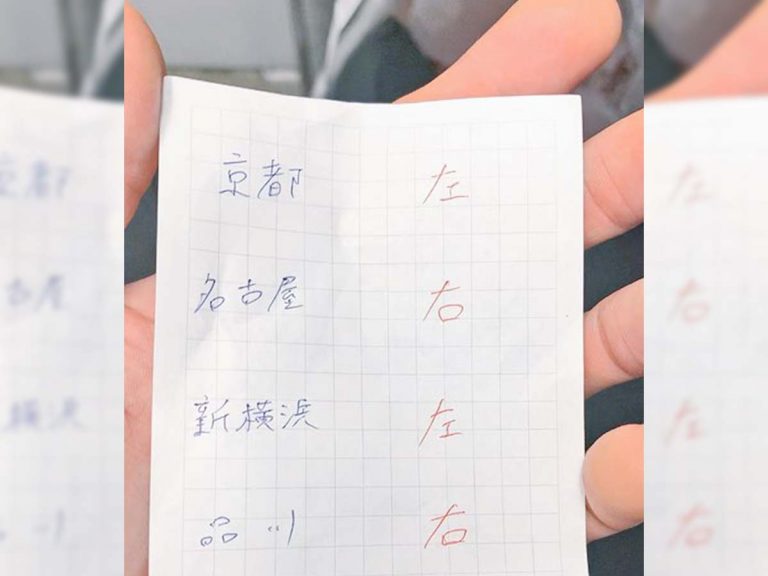 京都 左
名古屋 右
新横浜 左
品川 右